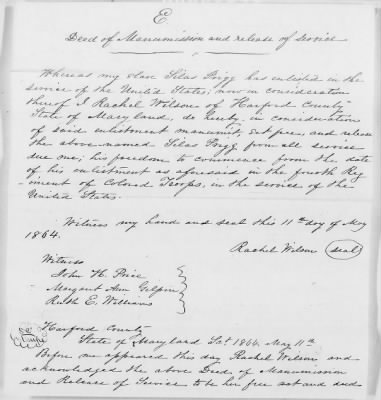 E
Deed of Manumission and release of Service
Whereas my slave Silas Prigg has enlisted in the
service of the United States; now in consideration
thereof I Rachel Wilson of Harford County
State of Maryland, do hereby in consideration
of said enlistment manumit, set free, and release
the above-named Silas Prigg from all service
due me; his freedom to commence from the date
of his enlistment as aforesaid in the fourth Reg
iment of Colored Troops, in the service of the
United States.
Witness my hand and seal this 11th day of May
1864.
Rachel Wilson (seal)
Witness
John H. Price
Margaret Ann Gilpin
Ruth E. Williams
Harford County
State of Maryland Sct. 1864. May 11th
Before me appeared this day Rachel Wilson and
acknowledged the above Deed of Manumission
and Release of Service to be her free act and deed